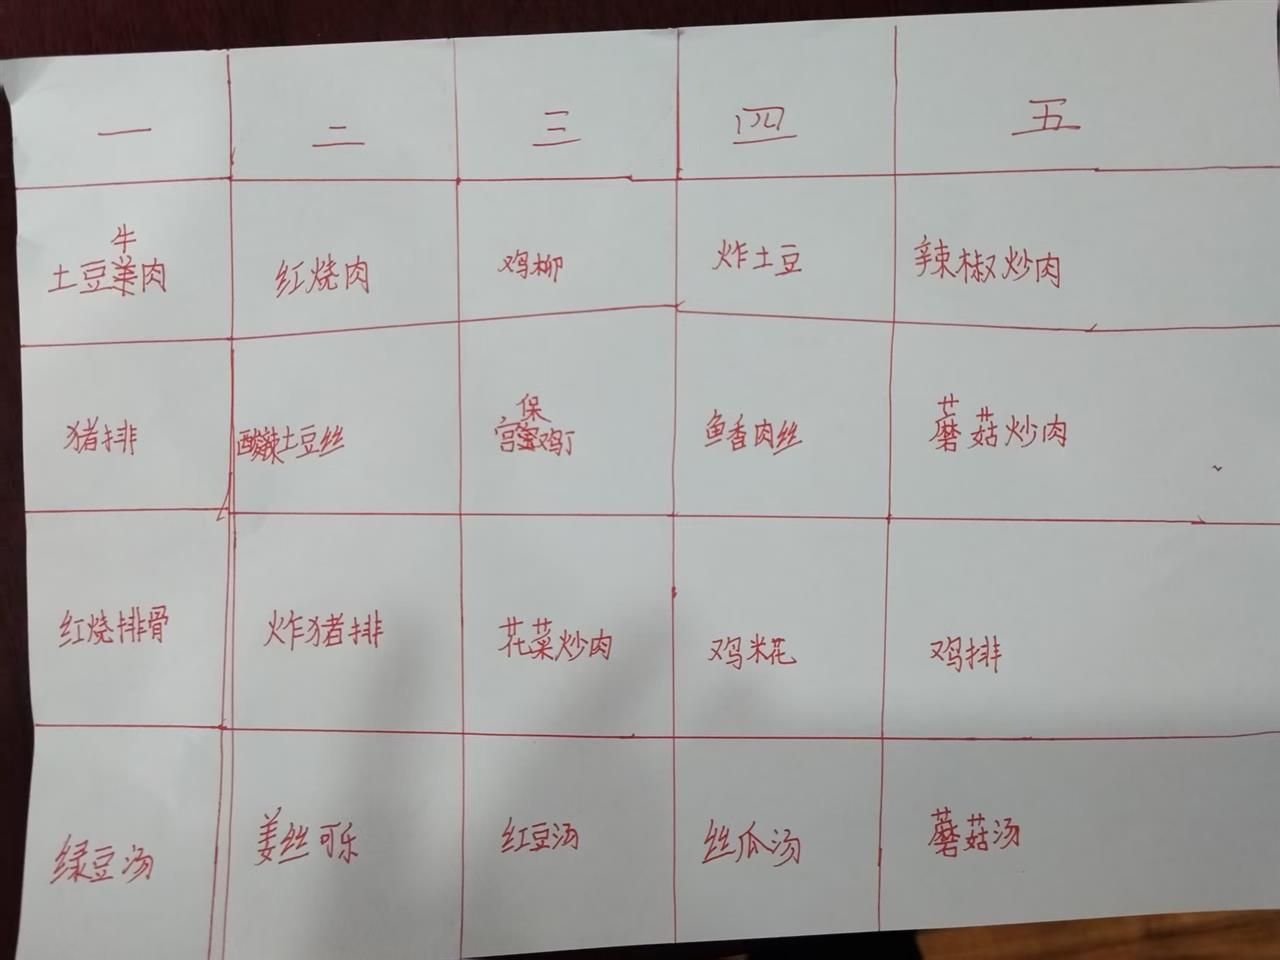 一 二 三 四 五
土豆牛肉 红烧肉 鸡柳 炸土豆 辣椒炒肉
猪排 酸辣土豆丝 宫保鸡丁 鱼香肉丝 蘑菇炒肉
红烧排骨 炸猪排 花菜炒肉 鸡米花 鸡排
绿豆汤 姜丝可乐 红豆汤 丝瓜汤 蘑菇汤